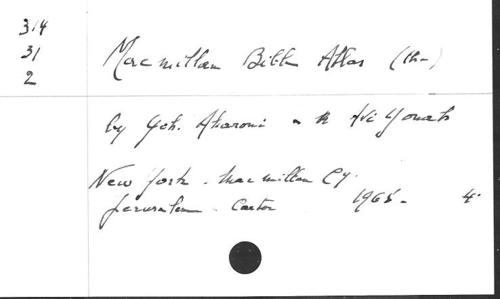 314
31
2
Macmillan Bible Atlas (the)
by Yoh. Aharoni & M Avi Yonah
New York. Macmillan Cy.
Jerusalem. Carta 1968. 4°